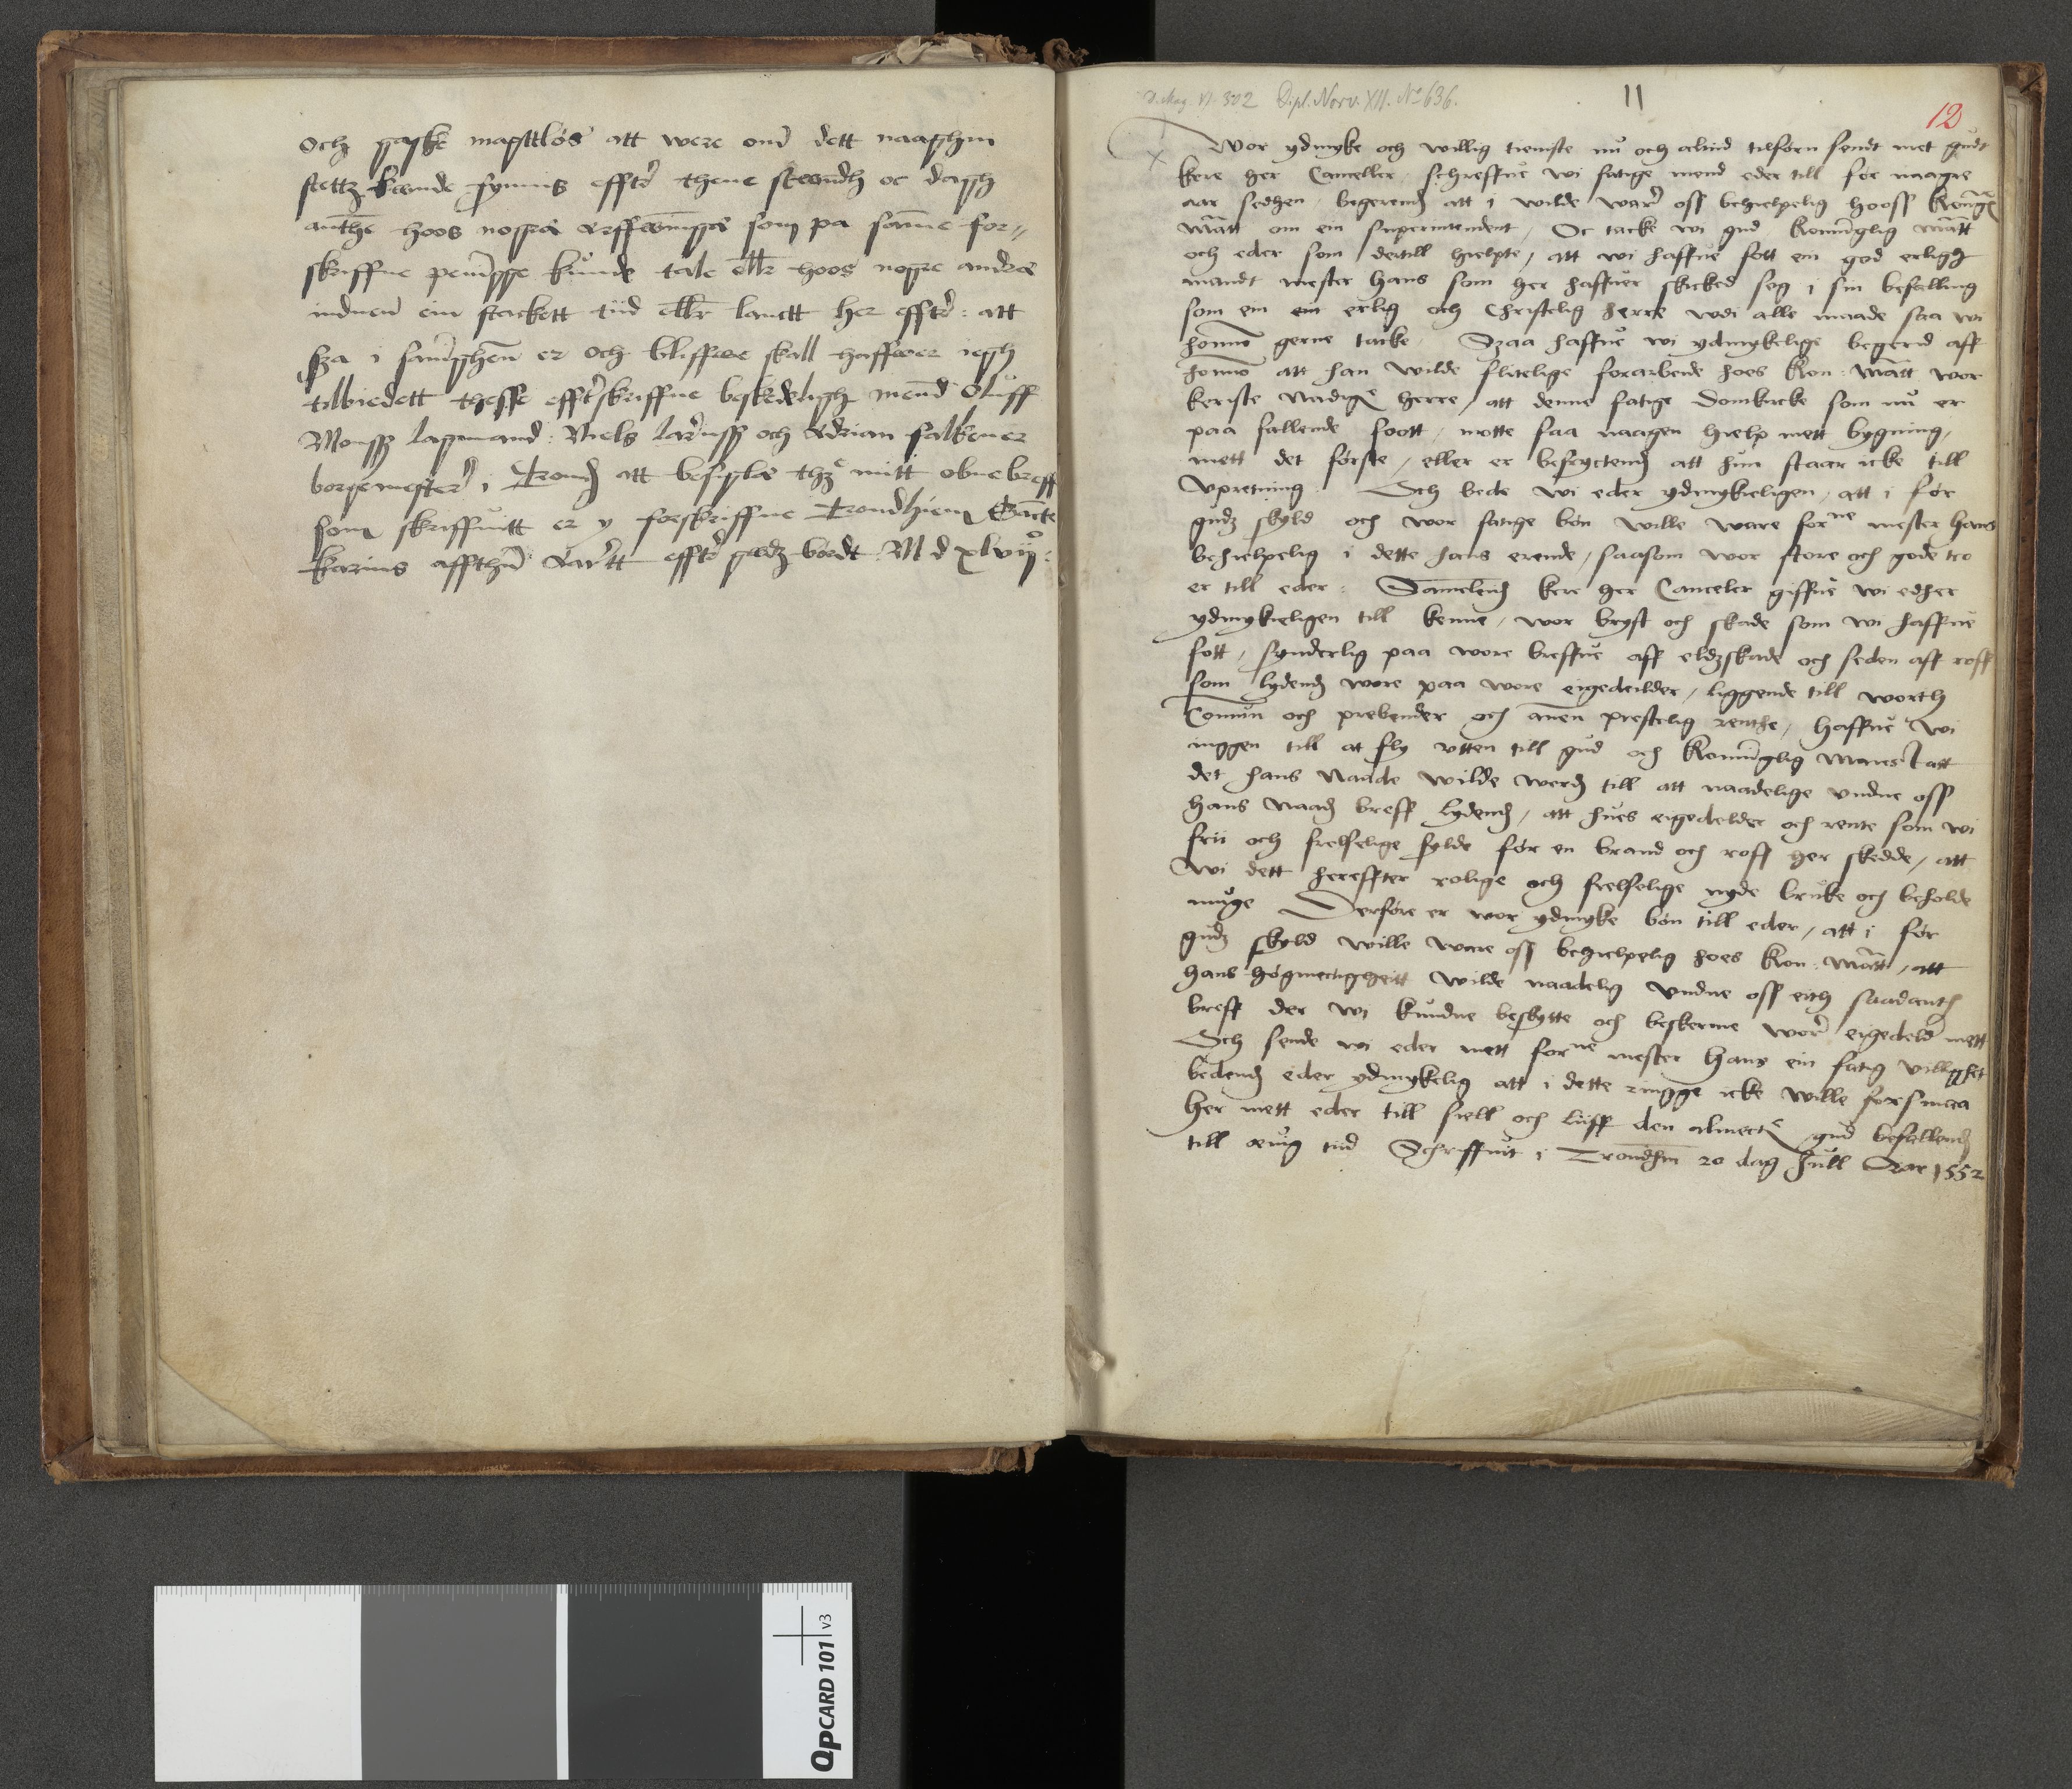 och ganske magttløs att were om dett naaghn
stettz kunde synnis effter thene stwndh oc dagh
anthe hoos nogra arffwinga som pa samme for„
skriffne penigge kunde tale eller hoos nogre andra
induen ein stackett tiid eller langtt her effter : att
sza i sanighen er och bliffwe skall haffwer iegh
tilbiedett thesse effterskriffne beskedeligh mend Oluff
Monssz lagmand : Niels larenssz och Adrian falkener
borgemester i Trondh att besigla thz mitt obne breff
som skriffuitt er y forskriffne Trondhiem Sancte
karins affthen aarett effter gudz bördt M d xlvij :
D. Mag. VI. 302 Dipl. Norv. XII. No 636.
11
12
Wor ydmyke och willig tienste nu och altiid tilforn sendt met gudt
kere her Canceller, schreffue wi fatige mend eder till for naagre
aar sedhen, begerend att i wilde ware oss behielpelig hooss konnge
Matt om ein superintendent, Oc tacke wi gud konninglig Matt
och eder som dertill hielpte, att wi haffue fott ein god erligh
mandt mester Hans som her haffuer skicked seg i sin befalling
som em ein erlig och Christelig herre wdi alle maade saa wi
honnom gerne tacke. Szaa haffue wi ydmykelige begerid aff
honnom att han wilde flitelige forarbende hoes Kon: Matt wor
keriste nadige herre, att denne fatige Domkircke som nu er
paa fallende foott, motte faa naagen hielp mett bygning,
mett det første, eller er befryctend att hun staar icke till
vpretning. Och bede wi eder ydmykieligen, att i for
gudz skyld och wor fatige bøn wille ware forne mester Hans
behielpelig i dette hans erende, saasom wor store och gode tro
er till eder: Samelend kere her Canceler giffue wi edher
ydmykieligen till kenne, wor bryst och skade som wi haffue
fott, synderlig paa wore breffue aff eldzskade och seden aff roff
som lydend wore paa wore eigedeilder, liggende till worth
Comun och prebender och anen prestelig renthe, haffue wi
inggen till at fly vtten till gud och konninglig Maiestatt
det hans Naade wilde werd till att naadelige vndne oss
hans naad breff lydend, att hues eigedelder och rente som wi
frii och frelselige fylde før en brand och roff her skedde, att
wi dett hereffter rolige och frelselige nyde bruke och beholde
muge Derføre er wor ydmyke bøn till eder, att i før
gudz skyld wille ware oss behielpelig hoes Kon: Matt, att
hans høgmectigheitt wilde naadelig vndne oss eith saadanth
breff der wi kundne beskytte och beskerme wor eigedeld mett
Och sende wi eder mett forne mester Hans ein fatig villighet
bedend eder ydmykelig att i dette ringge icke wille forsmaa
her mett eder till siell och liiff den almecte gud befallend
till æuig tiid Schriffuit i Trondhm 20 dag Jull Aar 1552
QpCARD 101 v3